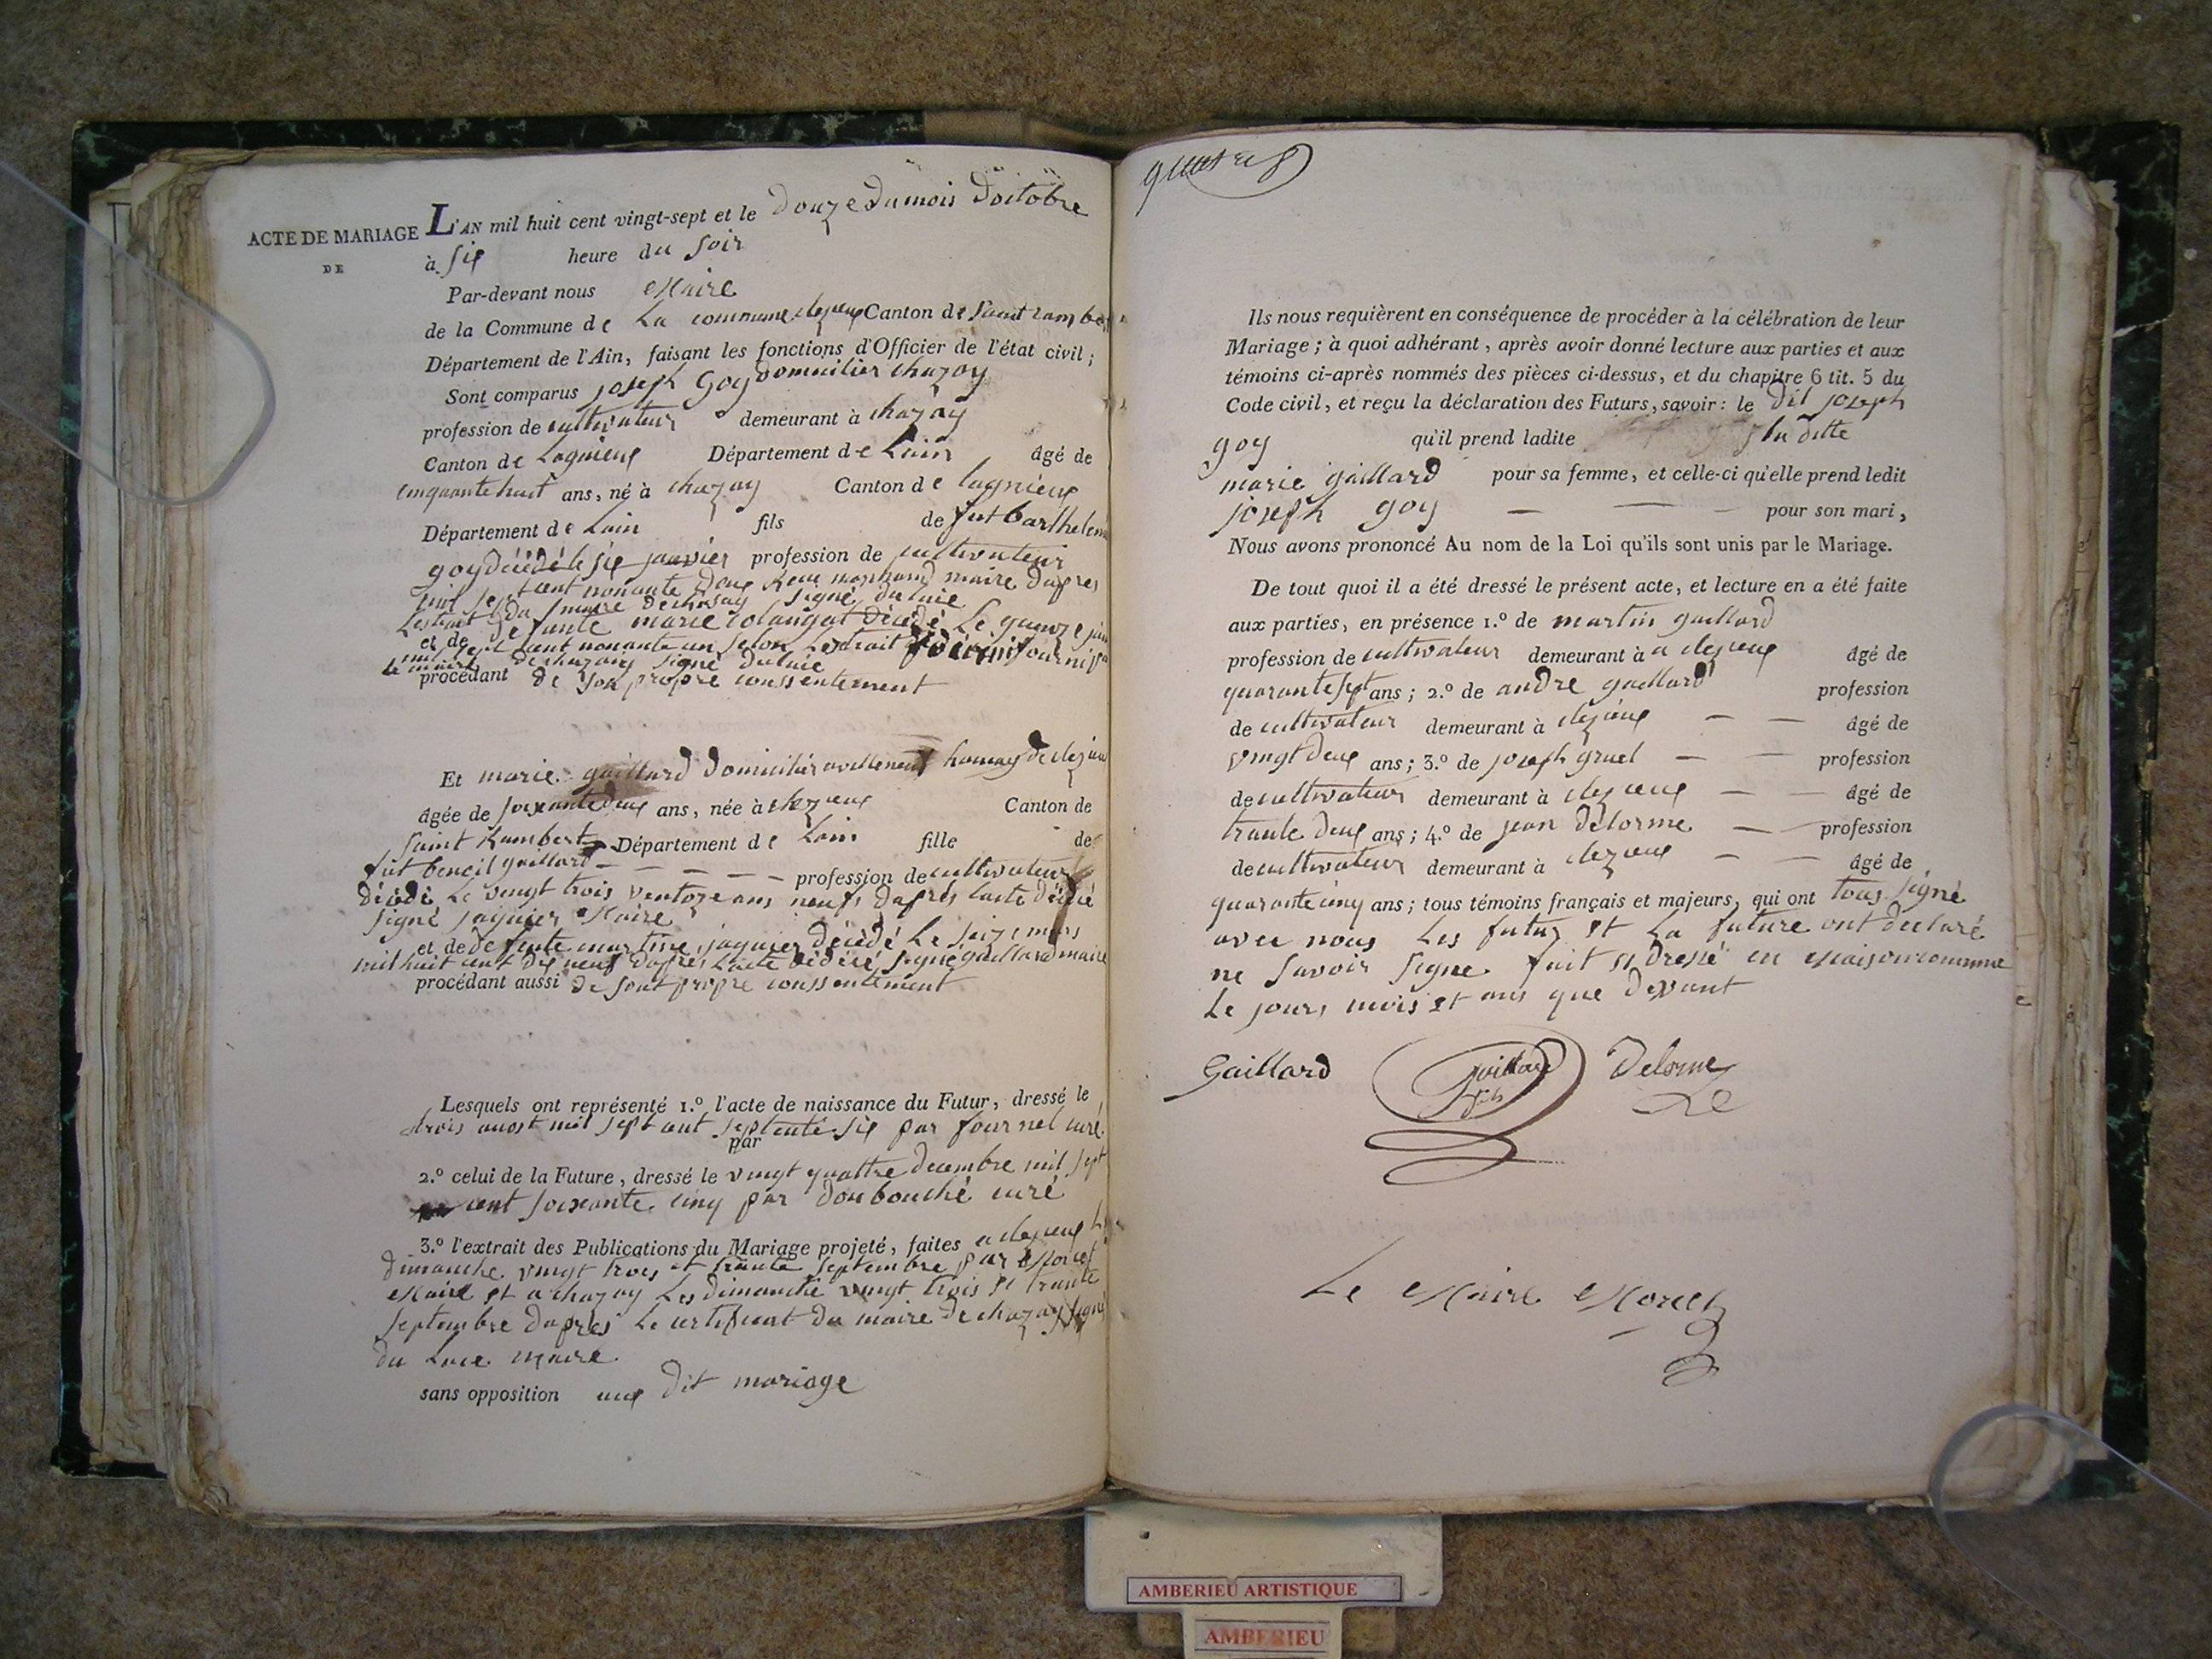 ACTE DE MARIAGE
DE
L'AN mil huit cent vingt-sept et le douze du mois doctobre
à six heure du soir
Par-devant nous Maire
de la Commune de La commune clezieux Canton de Saint ramber
Département de l'Ain, faisant les fonctions d'Officier de l'état civil;
Sont comparus joseph Goy domicilier chazay
profession de cultivateur demeurant à chazay
Canton de Lagnieux Département de Lain âgé de
cinquante huit ans, né à chazay Canton de lagnieux
Département de Lain fils de fut barthelemi
goy décédé le six janvier profession de cultivateur
mil sept cent nonante deux maire dapres
Lextrait du maire de chazay signé dulaie
et de defunte marie colangat décédé Le quinze juin
mil sept cent nonante un selon Lextrait fourni par
le maire de chazay signé dulaie
procédant de son propre conssentement
Et marie gaillard domicilier de clezieux
âgée de soixante deux ans, née à clezieux Canton de
Saint Rambert Département de Lain fille de
fut benoit gaillard profession de cultivateur
décédé Le vingt trois ventoze ans neufs daprés lacte décédé
signé jaquier Maire
et de defunte martine jaquier décédé Le seize mars
mil huit cent dix neuf daprés Lacte signé gaillard maire
procédant aussi de sont propre conssentement
Lesquels ont représenté 1.º l'acte de naissance du Futur, dressé le
trois auost mil sept cent septente six par fournel curé
par
2.º celui de la Future, dressé le vingt quattre decembre mil sept
cent soixante cinq par doubouché curé
3.º l'extrait des Publications du Mariage projeté, faites a clezieux
dimanche vingt trois et trante septembre par Morel
Maire et a chazay Les dimanche vingt trois et trante
septembre daprés Le certificat du maire de chazay signé
du Laie maire
sans opposition aux dit mariage
Ils nous requièrent en conséquence de procéder à la célébration de leur
Mariage; à quoi adhérant, après avoir donné lecture aux parties et aux
témoins ci-après nommés des pièces ci-dessus, et du chapitre 6 tit. 5 du
Code civil, et reçu la déclaration des Futurs, savoir: le dit joseph
goy qu'il prend ladite la ditte
marie gaillard pour sa femme, et celle-ci qu'elle prend ledit
joseph goy pour son mari,
Nous avons prononcé Au nom de la Loi qu'ils sont unis par le Mariage.
De tout quoi il a été dressé le présent acte, et lecture en a été faite
aux parties, en présence 1.º de martin gaillard
profession de cultivateur demeurant à a clezieux âgé de
quarante sept ans; 2.º de andre gaillard profession
de cultivateur demeurant à clezieux âgé de
vingt deux ans; 3.º de joseph gruel profession
de cultivateur demeurant à clezieux âgé de
trante deux ans; 4.º de jean délorme profession
de cultivateur demeurant à clezieux âgé de
quarante cinq ans; tous témoins français et majeurs, qui ont tous signé
avec nous Les futur et La future ont declaré
ne savoir signe fait et dressé en Maison commune
Le jours mois et ans que devant
Gaillard Gaillard Delorme
Le Maire Morel
AMBERIEU ARTISTIQUE
AMBERIEU